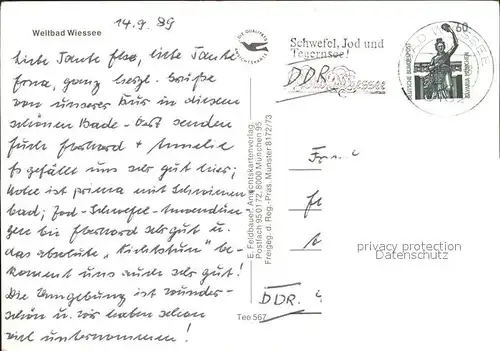 Weltbad Wiessee
14.9.89
liebe Tante Else, liebe Tante
Erna, ganz herzl. Grüße
von unserer Kur in diesem
schönen Bade-Ort senden
Euch Eberhard + Annelie
Es gefällt uns sehr gut hier;
Hotel ist prima mit Schwimm
bad; Jod-Schwefel-Anwendun
gen bei Eberhard sehr gut u.
das absolute "Nichtstun" be-
kommt uns auch sehr gut!
Die Umgebung ist wunder-
schön u. wir haben schon
viel unternommen!
DIE QUALITÄTS
E. Feldbauer, Ansichtskartenverlag
Postfach 950172, 8000 München 95
Freigeg. d. Reg.-Präs. Münster 8172/73
Teg 567
Schwefel, Jod und
Tegernsee!
DDR
Wiessee
60
DEUTSCHE BUNDESPOST
BAVARIA MÜNCHEN
BAD WIESSEE
DDR.
privacy protection
Datenschutz